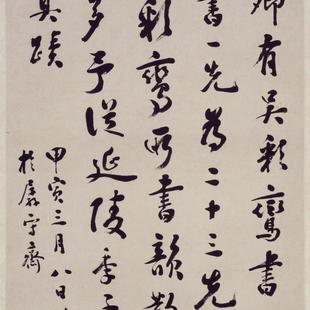 卿有吳彩鸞書
書一先為二十三先
彩鸞所書韻
多予從延陵季子
真蹟
甲寅三月八日
於孱守齋